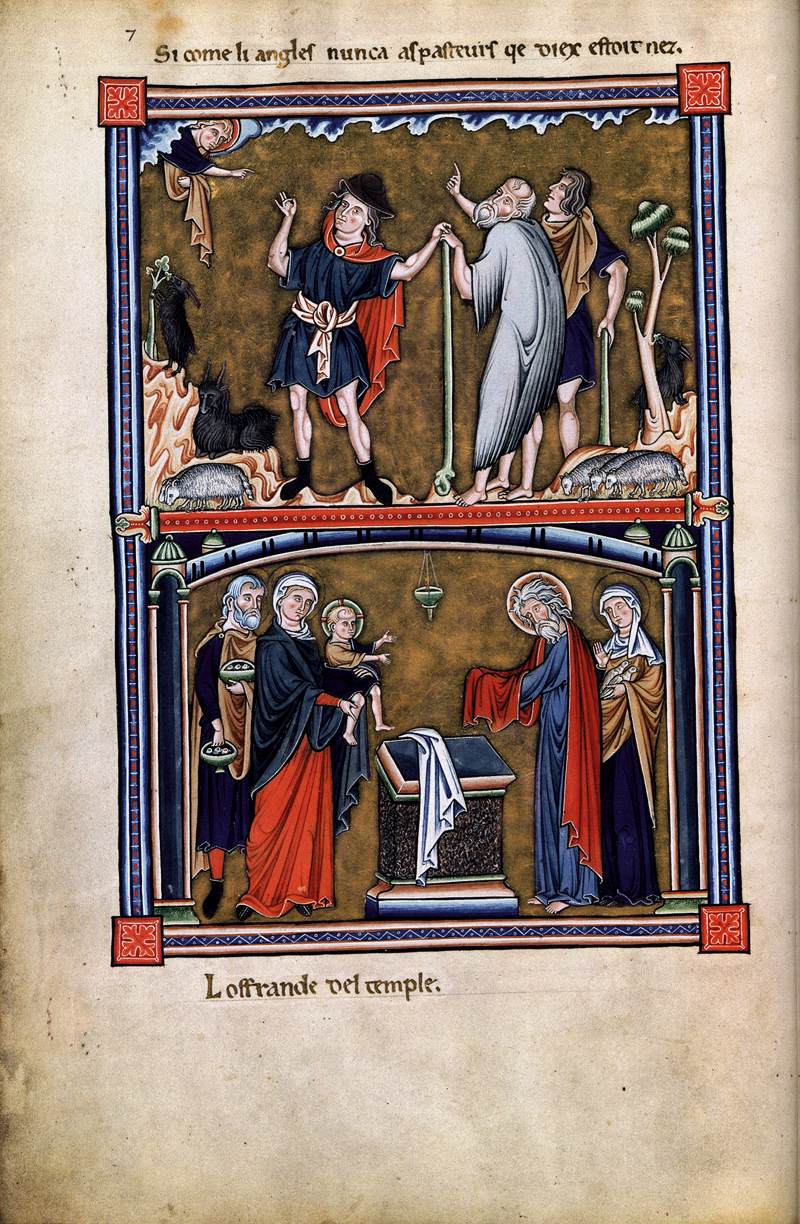 7
Si come li angles nunca as pasteurs qe diex estoit nez.
L offrande del temple.